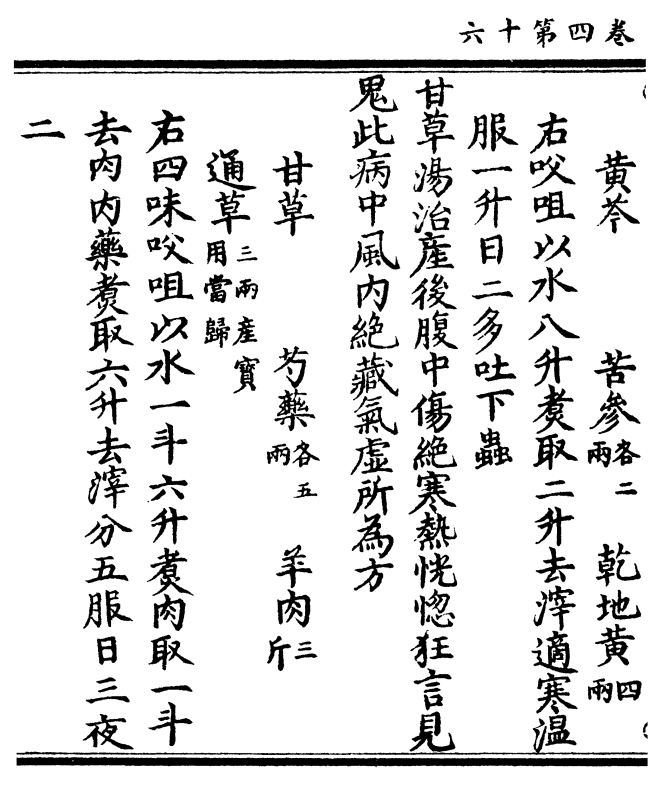 六十第四卷
黃芩 苦參各二兩 乾地黃四兩
右㕮咀以水八升煑取二升去滓適寒温
服一升日二多吐下蟲
甘草湯治產後腹中傷絶寒熱恍惚狂言見
鬼此病中風內絶藏氣虛所為方
甘草 芍藥各五兩 羊肉三斤
通草三兩產寶用當歸
右四味㕮咀以水一斗六升煑肉取一斗
去肉內藥煑取六升去滓分五服日三夜
二